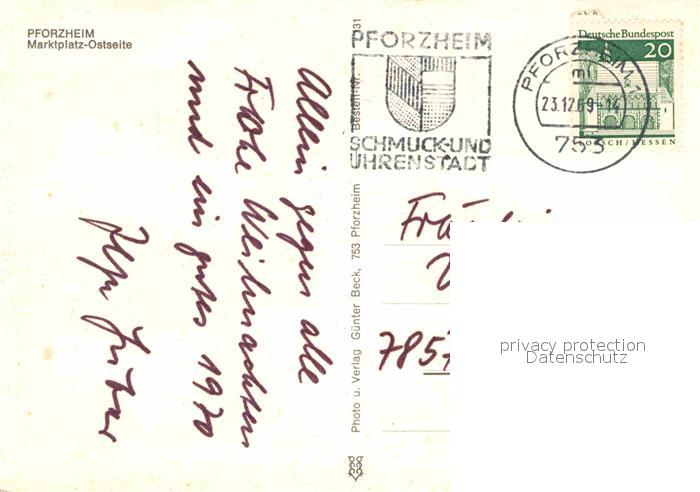 PFORZHEIM
Marktplatz-Ostseite
Allein gegen alle
Frohe Weihnachten
und ein gutes 1970
Bestell-Nr. 131
Photo u. Verlag Günter Beck, 753 Pforzheim
PFORZHEIM
SCHMUCK-UND
UHRENSTADT
PFORZHEIM 1
23.12.69-14
753
Deutsche Bundespost
20
LORSCH/HESSEN
785
privacy protection
Datenschutz